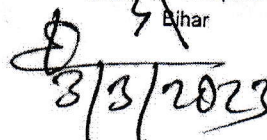 Bihar
3/3/2023